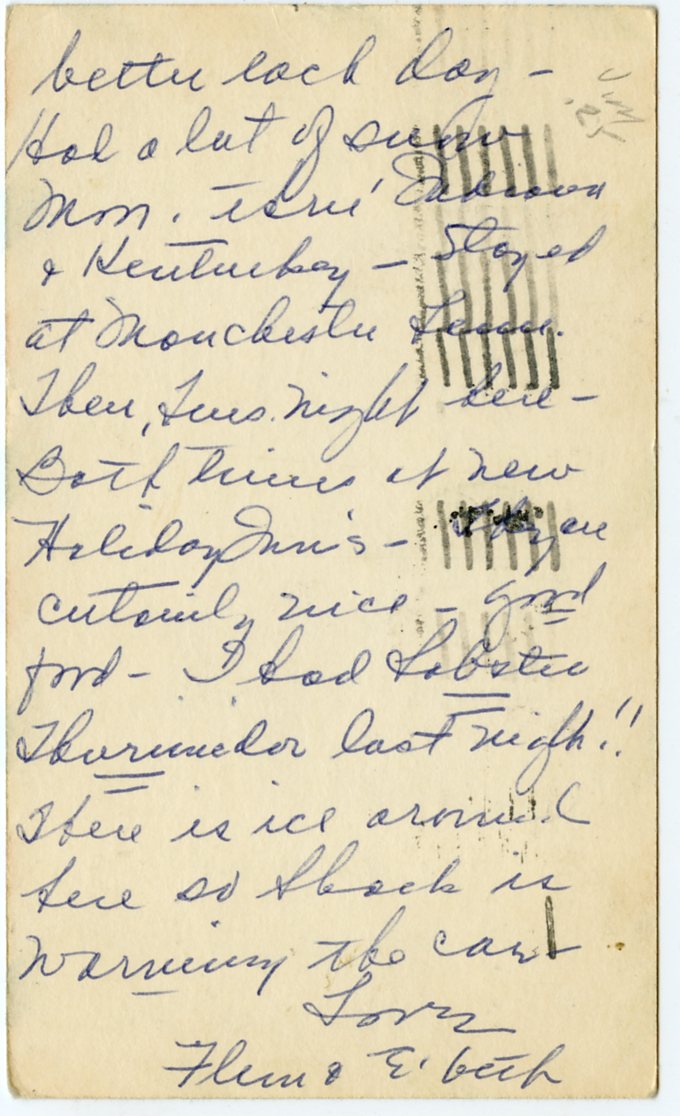 better each day -
Had a lot of snow
Mon. thru' Indiana
& Kentucky - Stayed
at Manchester Tenn.
Then, Tues. night here -
Both times at new
Holiday Inn's - They are
certainly nice - good
food - I had Lobster
Thurmidor last night!!
There is ice around
here so is
warming the car -
Love
Flem & E. beth